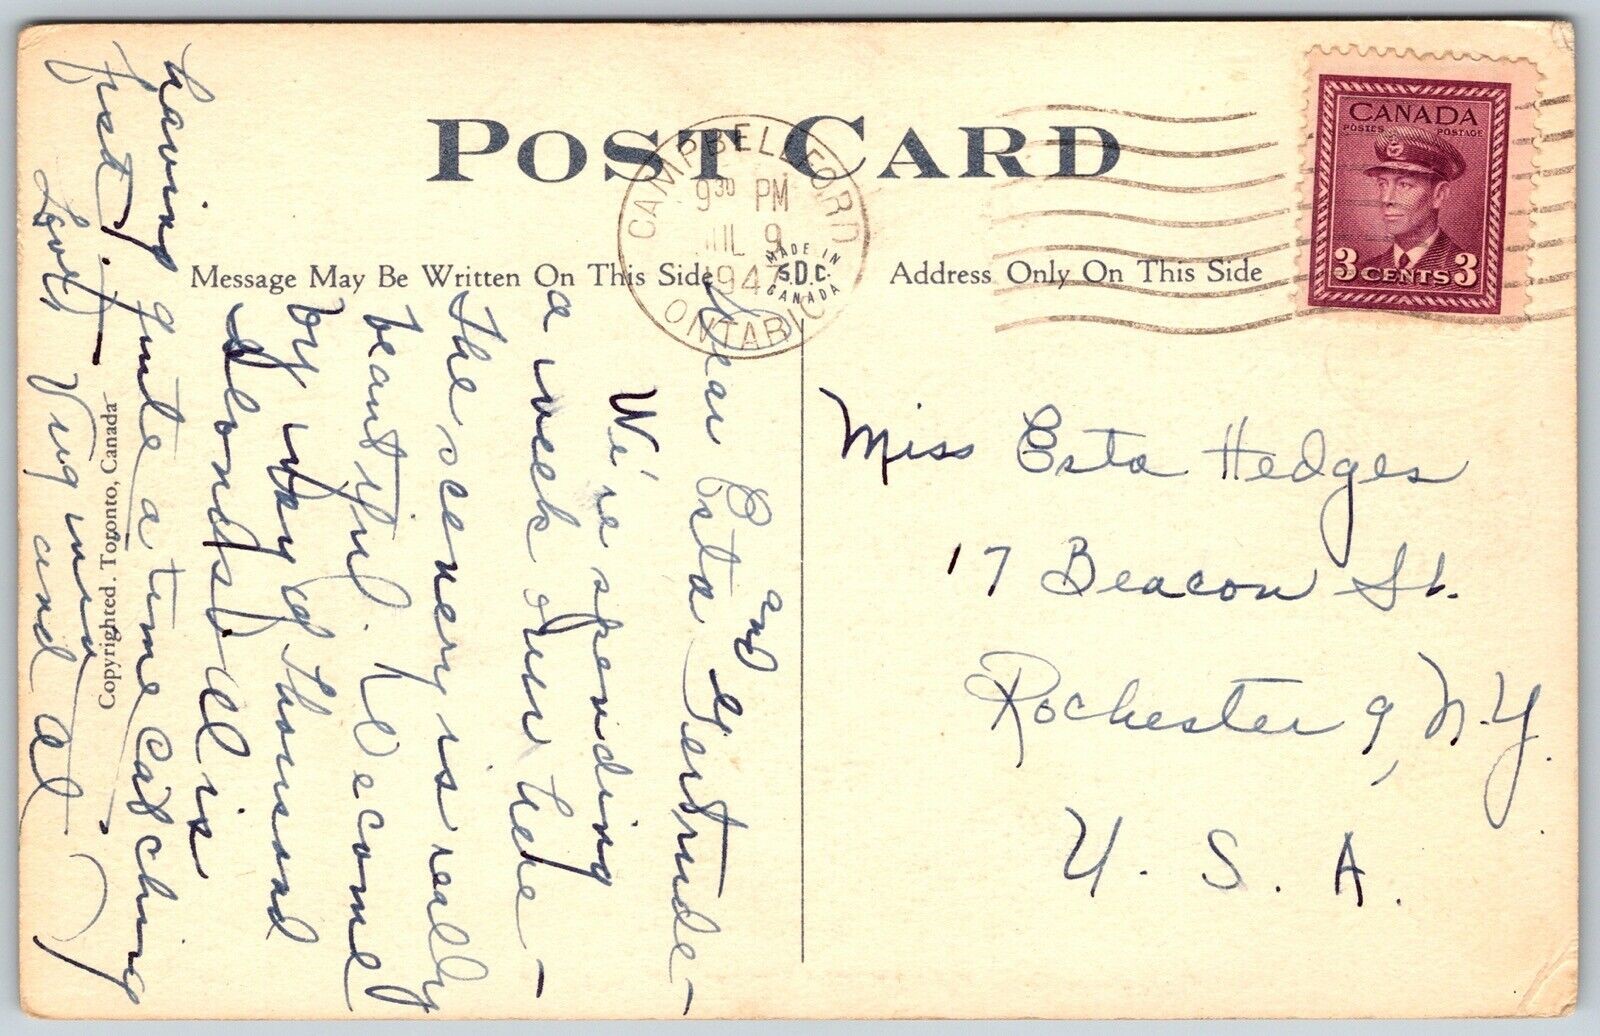 POST CARD
CAMPBELLFORD
9 30 PM
JUL 9
1947
ONTARIO
MADE IN
S.D.C.
CANADA
CANADA
POSTES POSTAGE
3 CENTS 3
Message May Be Written On This Side
Address Only On This Side
Dear Esta and Gertrude -
We're spending
a week down here -
The scenery is really
beautiful. We come
by way of Thousand
Islands. All is
having quite a time catching
fish.
Love
Virginia and Al
Copyrighted. Toronto, Canada
Miss Esta Hedges
17 Beacon St.
Rochester 9, N.Y.
U. S. A.